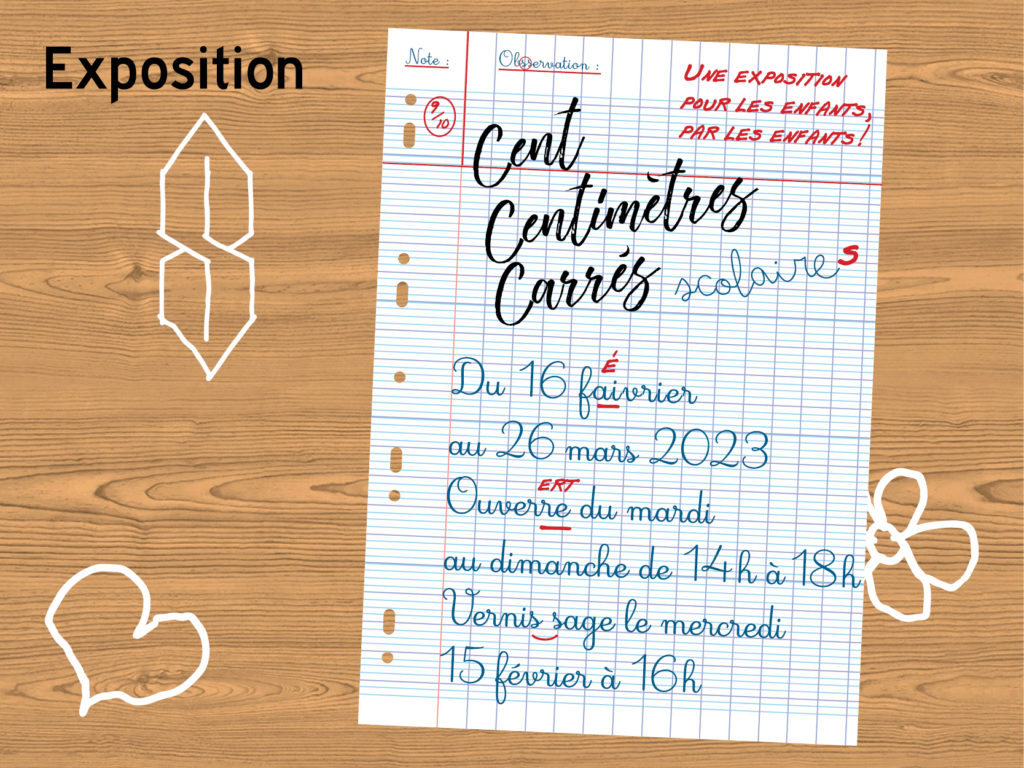 Exposition
Note :
Observation :
UNE EXPOSITION
POUR LES ENFANTS,
PAR LES ENFANTS !
9/10
Cent
Centimètres
Carrés scolaires
É
Du 16 faivrier
au 26 mars 2023
ERT
Ouverre du mardi
au dimanche de 14h à 18h
Vernis sage le mercredi
15 février à 16h